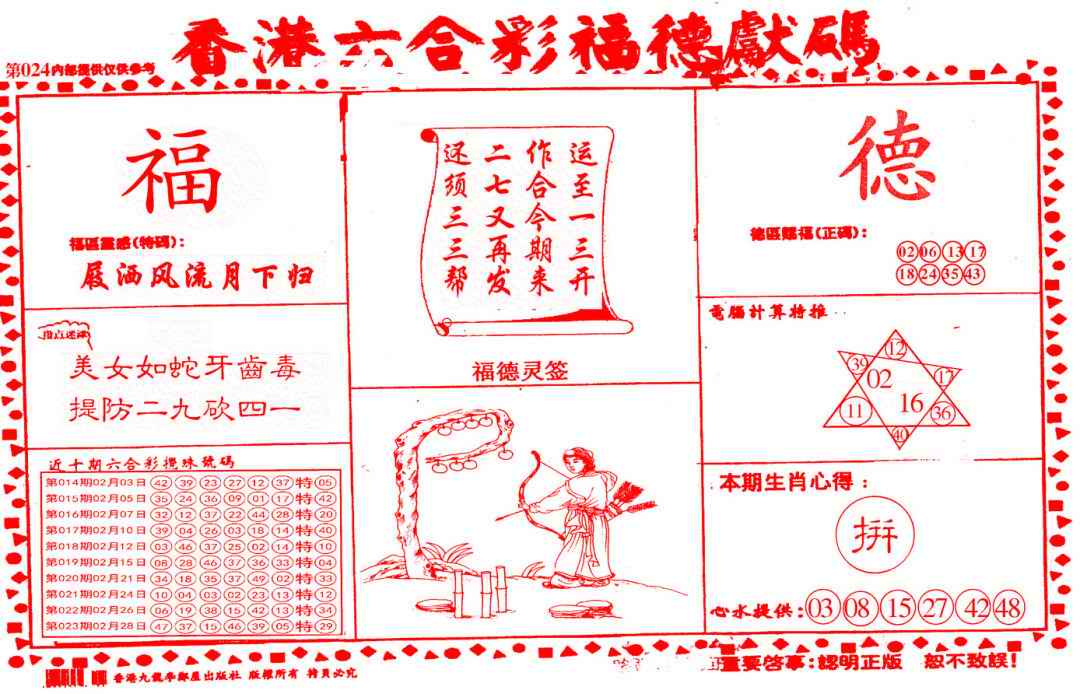 香港六合彩福德獻碼
第024内部提供仅供参考
福
福區靈感(特碼):
屐洒风流月下归
指点迷津
美女如蛇牙齒毒
提防二九砍四一
近十期六合彩攪珠號碼
第014期02月03日 42 39 23 27 12 37 特 05
第015期02月05日 35 24 36 09 01 17 特 42
第016期02月07日 32 12 37 22 44 28 特 20
第017期02月10日 39 04 26 03 18 14 特 40
第018期02月12日 03 46 37 25 02 14 特 10
第019期02月15日 08 28 46 37 36 33 特 04
第020期02月21日 34 18 35 37 49 02 特 33
第021期02月24日 10 04 03 02 23 13 特 12
第022期02月26日 06 19 38 15 42 13 特 34
第023期02月28日 47 37 15 46 39 05 特 29
运至一三开
作合今期来
二七又再发
还须三三帮
福德灵签
德
德區賜福(正碼):
02 06 13 17
18 24 35 43
電腦計算特推
12
39
02
17
11
16
36
40
本期生肖心得:
拼
心水提供: 03 08 15 27 42 48
香港九龍 出版社 版權所有 特員必究
重要啓事:認明正版 恕不致誤!